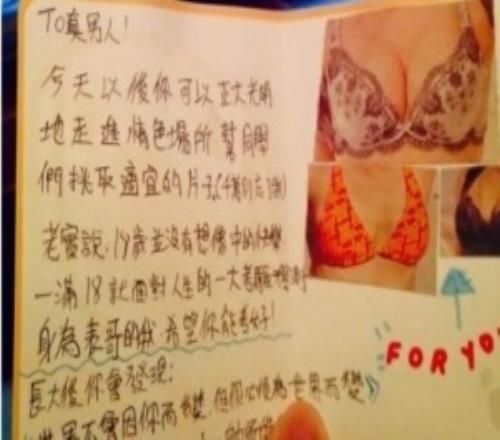 TO真男人!
今天以後你可以正大光明
地走進情色場所 幫同學
們挑取適宜的片子(千萬別忘
老實說,19歲並沒有想像中的
一滿18就面對人生的一大考驗
身為表哥的我,希望你能考好!
長大後你會發現:
世界不會因你而改變,但你必須為世界而變
FOR YO